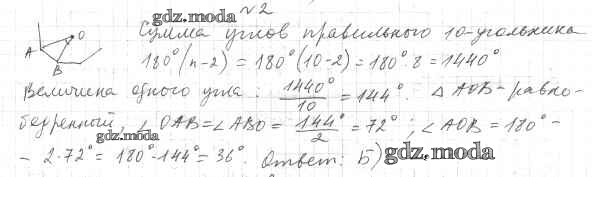 gdz.moda
№2
Сумма углов правильного 10-угольника
180°(n-2) = 180°(10-2) = 180°·8 = 1440°
Величина одного угла : 1440°/10 = 144°. △ AOB - равно-
бедренный, ∠OAB=∠ABO = 144°/2 = 72° ; ∠AOB = 180° -
- 2·72° = 180°-144° = 36°. Ответ: Б)
O
A
B
gdz.moda
gdz.moda